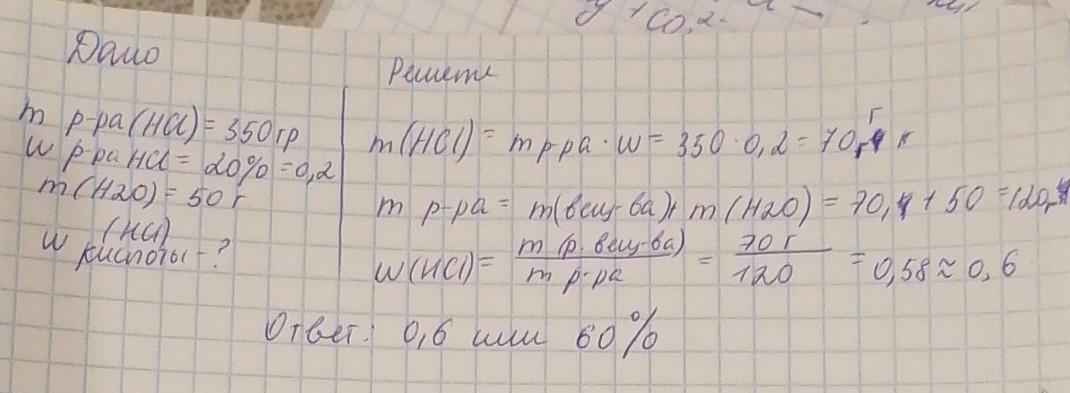 CO2
Дано
Решение
m р-ра(HCl) = 350гр
w р-ра HCl = 20% = 0,2
m(H2O) = 50 г
w (HCl) кислоты - ?
m(HCl) = m р-ра · w = 350 · 0,2 = 70 г
m р-ра = m(вещ-ва) + m(H2O) = 70 + 50 = 120
w(HCl) = m(р. вещ-ва) / m р-ра = 70 г / 120 = 0,58 ≈ 0,6
Ответ: 0,6 или 60%